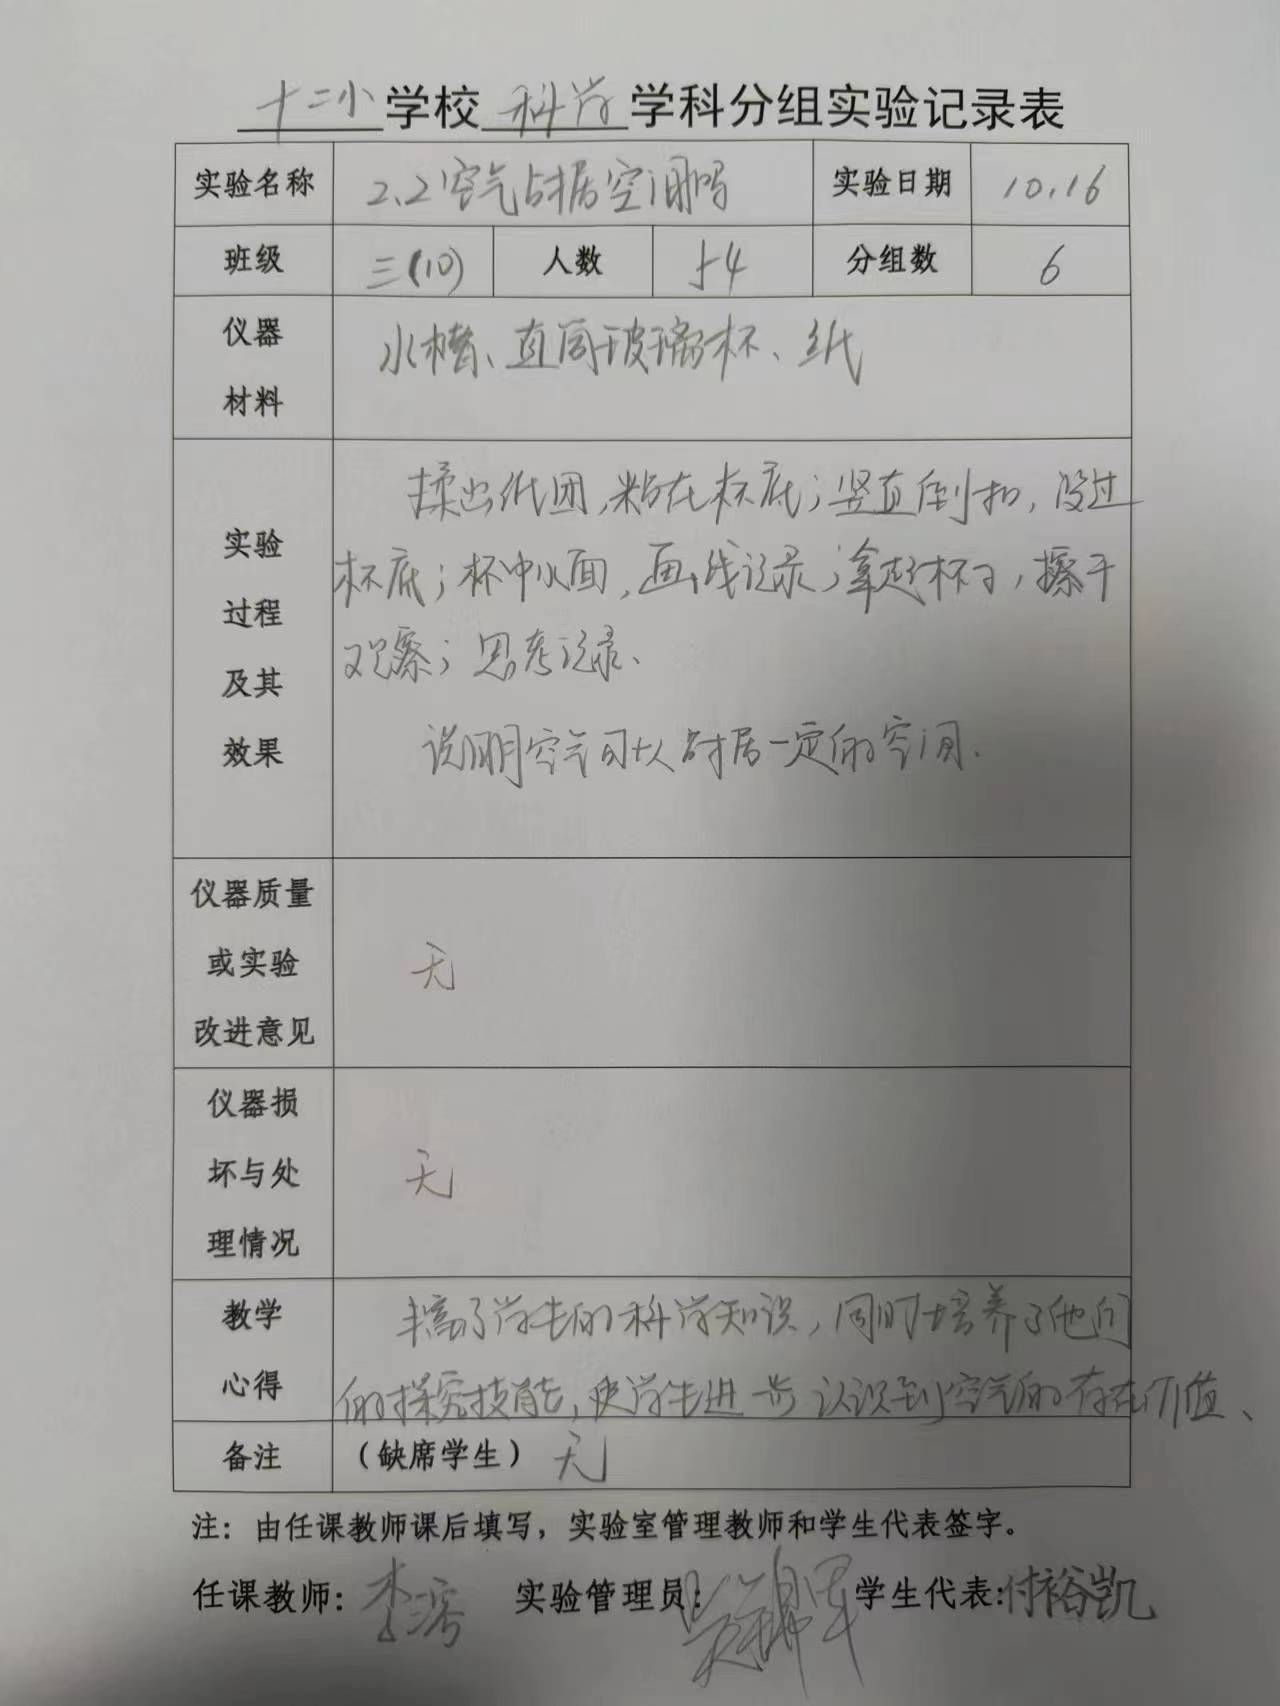 十二小学校 科学 学科分组实验记录表
实验名称 2.2空气占据空间吗 实验日期 10.16
班级 三(10) 人数 54 分组数 6
仪器
材料
水槽、直筒玻璃杯、纸
实验
过程
及其
效果
揉出纸团,粘在杯底;竖直倒扣,没过
杯底;杯中水面,画线记录;拿起杯子,擦干
观察;思考记录、
说明空气可以占据一定的空间.
仪器质量
或实验
改进意见
无
仪器损
坏与处
理情况
无
教学
心得
丰富了学生的科学知识,同时培养了他们
的探究技能,使学生进一步认识到空气的存在价值、
备注 (缺席学生) 无
注:由任课教师课后填写,实验室管理教师和学生代表签字。
任课教师: 实验管理员: 学生代表:付裕凯